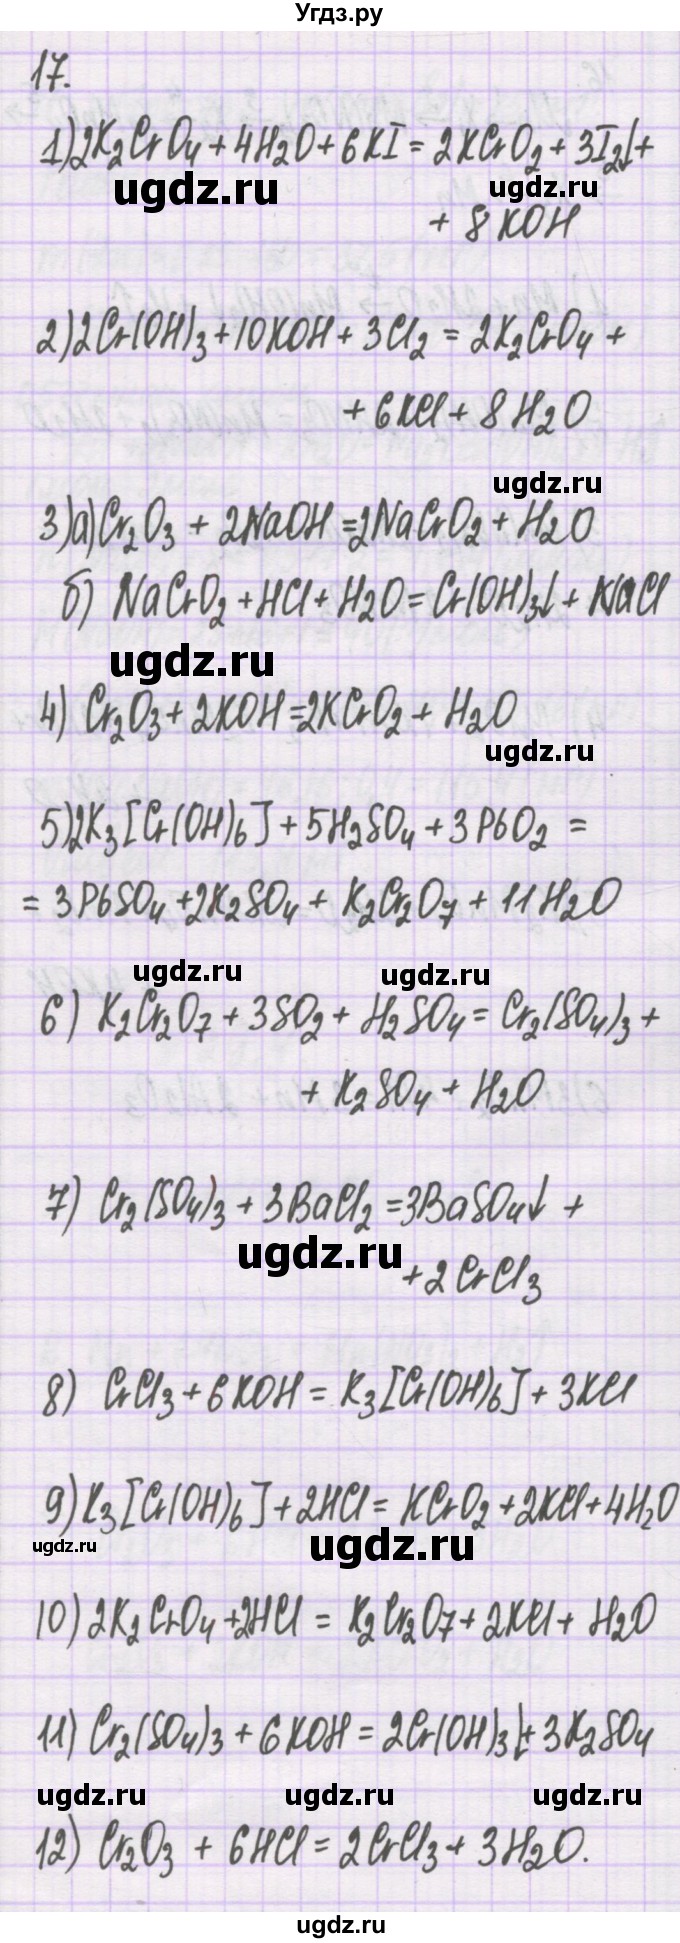 Угдз.ру
17.
1) 2K₂CrO₄ + 4H₂O + 6KI = 2KCrO₂ + 3I₂↓ +
ugdz.ru ugdz.ru
+ 8KOH
2) 2Cr(OH)₃ + 10KOH + 3Cl₂ = 2K₂CrO₄ +
+ 6KCl + 8H₂O
ugdz.ru
3) а) Cr₂O₃ + 2NaOH = 2NaCrO₂ + H₂O
б) NaCrO₂ + HCl + H₂O = Cr(OH)₃↓ + NaCl
ugdz.ru
4) Cr₂O₃ + 2KOH = 2KCrO₂ + H₂O
ugdz.ru
5) 2K₃[Cr(OH)₆] + 5H₂SO₄ + 3PbO₂ =
= 3PbSO₄ + 2K₂SO₄ + K₂Cr₂O₇ + 11H₂O
ugdz.ru ugdz.ru
6) K₂Cr₂O₇ + 3SO₂ + H₂SO₄ = Cr₂(SO₄)₃ +
+ K₂SO₄ + H₂O
7) Cr₂(SO₄)₃ + 3BaCl₂ = 3BaSO₄↓ +
ugdz.ru
+ 2CrCl₃
8) CrCl₃ + 6KOH = K₃[Cr(OH)₆] + 3KCl
9) K₃[Cr(OH)₆] + 2HCl = KCrO₂ + 2KCl + 4H₂O
ugdz.ru ugdz.ru
10) 2K₂CrO₄ + 2HCl = K₂Cr₂O₇ + 2KCl + H₂O
11) Cr₂(SO₄)₃ + 6KOH = 2Cr(OH)₃↓ + 3K₂SO₄
ugdz.ru ugdz.ru ugdz.ru
12) Cr₂O₃ + 6HCl = 2CrCl₃ + 3H₂O.
ugdz.ru